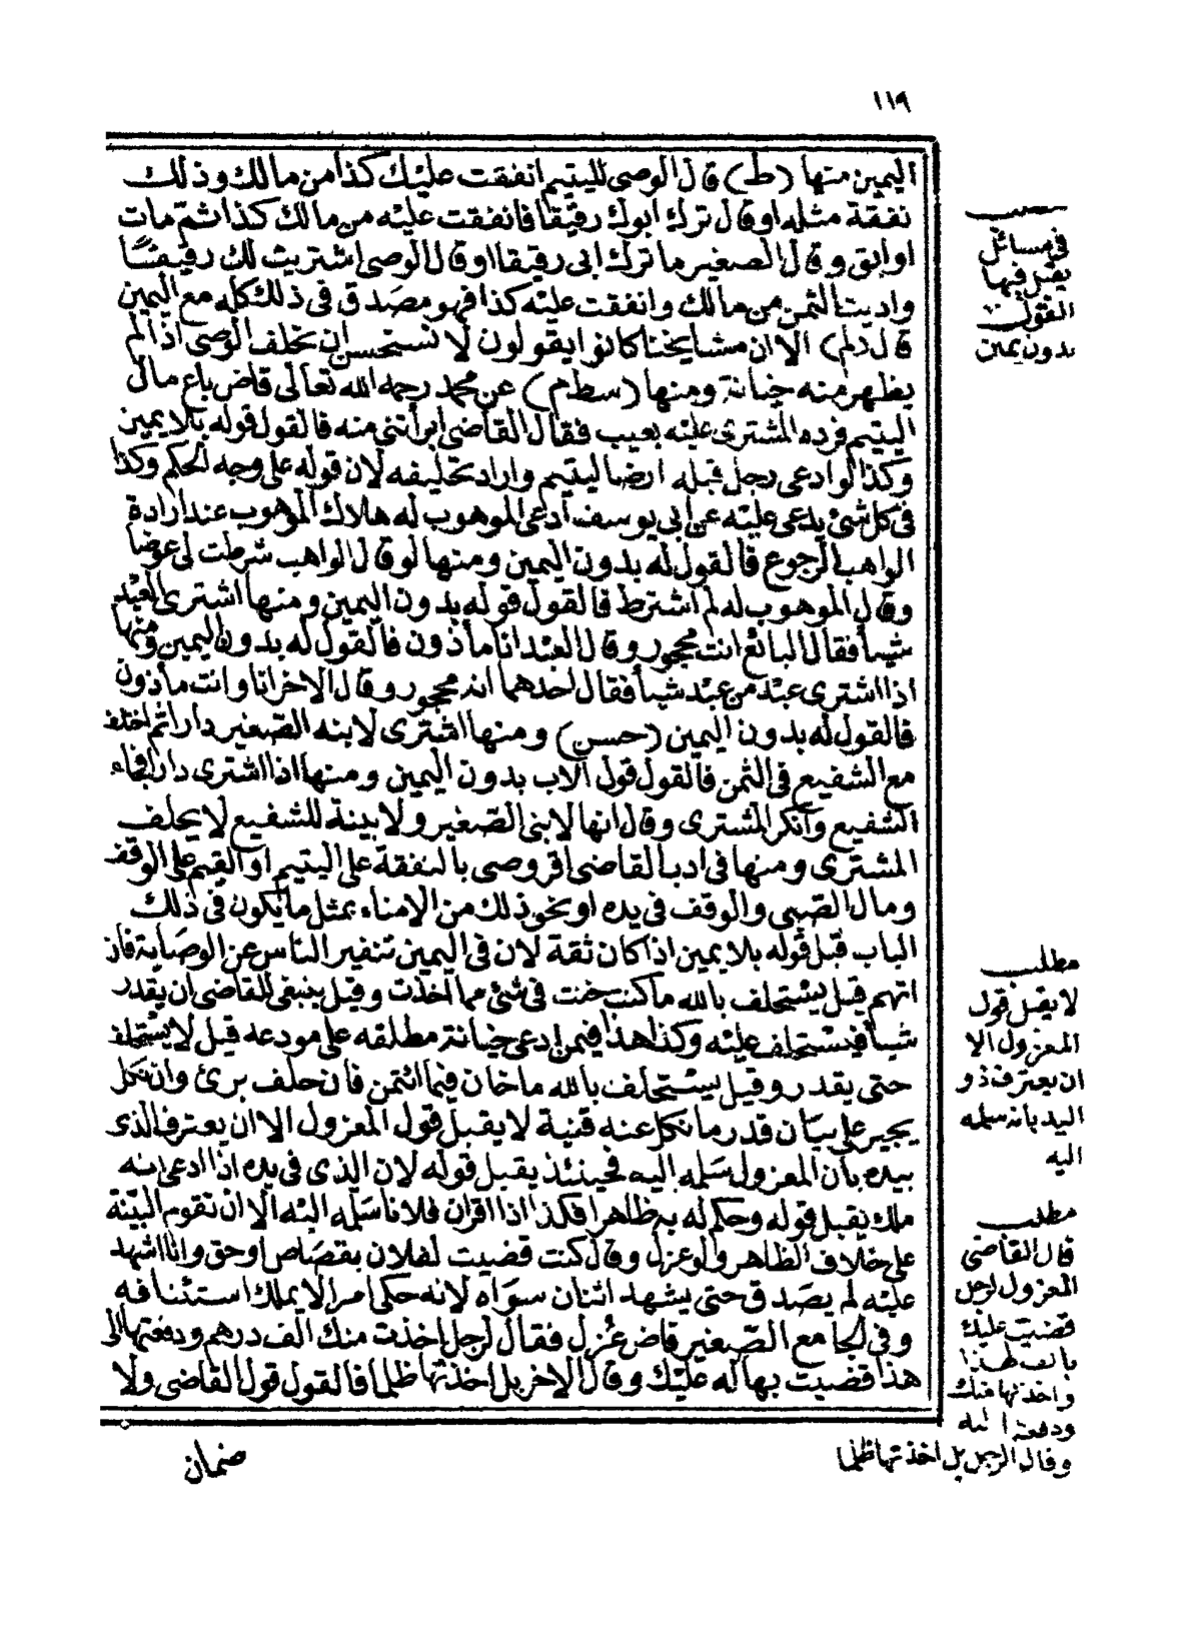 ١١٩
اليمين منها (ط) قال الوصى لليتيم انفقت عليك كذا من مالك وذلك
نفقة مثله او قال ترك ابوك رقيقا فانفقت عليه من مالك كذا ثم مات
او ابق وقال الصغير ما ترك ابى رقيقا او قال الوصى اشتريت لك رقيقا
واديت الثمن من مالك وانفقت عليه كذا فهو مصدق فى ذلك كله مع اليمين
قال (م) الا ان مشايخنا كانوا يقولون لا نستحسن ان نحلف الوصى اذا لم
يظهر منه خيانة ومنها (سطم) عن محمد رحمه الله تعالى قاض باع مال
اليتيم فرده المشترى عليه بعيب فقال القاضى ابرأتنى منه فالقول قوله بلا يمين
وكذا لو ادعى رجل قبله ارضا ليتيم واراد تحليفه لان قوله على وجه الحكم وكذا
فى كل شئ يدعى عليه عن ابى يوسف ادعى الموهوب له هلاك الموهوب عند ارادة
الواهب الرجوع فالقول له بدون اليمين ومنها لو قال الواهب شرطت لى عوضا
وقال الموهوب له لم اشترط فالقول قوله بدون اليمين ومنها اشترى العبد
شيأ فقال البائع انت محجور وقال العبد انا مأذون فالقول له بدون اليمين ومنها
اذا اشترى عبد من عبد شيأ فقال احدهما انه محجور وقال الاخر انا وانت مأذون
فالقول له بدون اليمين (حسن) ومنها اشترى لابنه الصغير دارا ثم اختلف
مع الشفيع فى الثمن فالقول قول الاب بدون اليمين ومنها اذا اشترى دارا فجاء
الشفيع وانكر المشترى وقال انها لابنى الصغير ولا بينة للشفيع لا يحلف
المشترى ومنها فى ادب القاضى اقر وصى بالنفقة على اليتيم او القيم على الوقف
ومال الصبى والوقف فى يده او نحو ذلك من الامناء بمثل ما يكون فى ذلك
الباب قبل قوله بلا يمين اذا كان ثقة لان فى اليمين تنفير الناس عن الوصاية فان
اتهم قيل يستحلف بالله ما كنت خنت فى شئ مما اخذت وقيل ينبغى للقاضى ان يقدر
شيأ فيستحلف عليه وكذا هذا فيمن ادعى خيانة مطلقه على مودعه قيل لا يستحلف
حتى يقدر وقيل يستحلف بالله ما خان فيما ائتمن فان حلف برئ وان نكل
يجبر على بيان قدر ما نكل عنه قنية لا يقبل قول المعزول الا ان يعترف الذى
بيده بأن المعزول سلمه اليه فحينئذ يقبل قوله لان الذى فى يده اذا ادعى انه
ملك يقبل قوله وحكم له به ظاهرا فكذا اذا اقر ان فلانا سلمه اليه الا ان تقوم البينة
على خلاف الظاهر ولو عزل وقال كنت قضيت لفلان بقصاص او حق وانا اشهد
عليه لم يصدق حتى يشهد اثنان سواه لانه حكى امرا لا يملك استئنافه
وفى الجامع الصغير قاض عزل فقال لرجل اخذت منك الف درهم ودفعتها الى
هذا قضيت بها له عليك وقال الاخر بل اخذتها ظلما فالقول قول القاضى ولا
ضمان
مطلب
فى مسائل
يقبل فيها
القول
بدون يمين
مطلب
لا يقبل قول
المعزول الا
ان يعترف ذو
اليد بانه سلمه
اليه
مطلب
قال القاضى
المعزول لرجل
قضيت عليك
بالف لهذا
واخذتها منك
ودفعتها اليه
وقال الرجل بل اخذتها ظلما